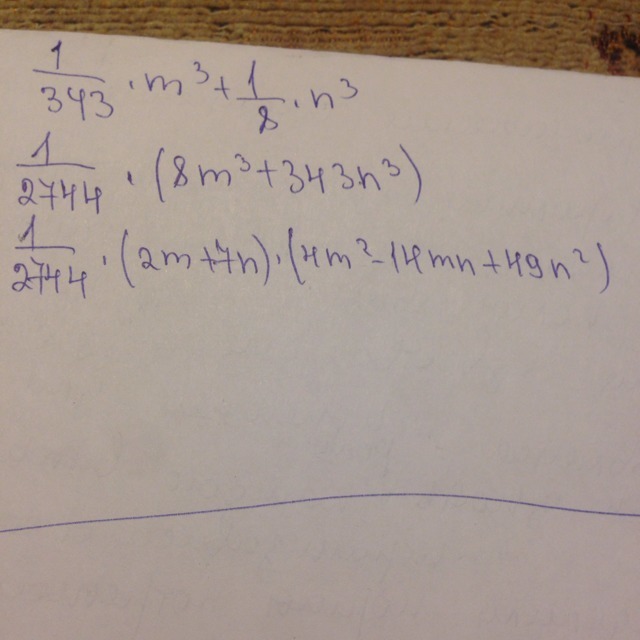 1/343 · m³ + 1/8 · n³
1/2744 · (8m³ + 343n³)
1/2744 · (2m + 7n) · (4m² - 14mn + 49n²)